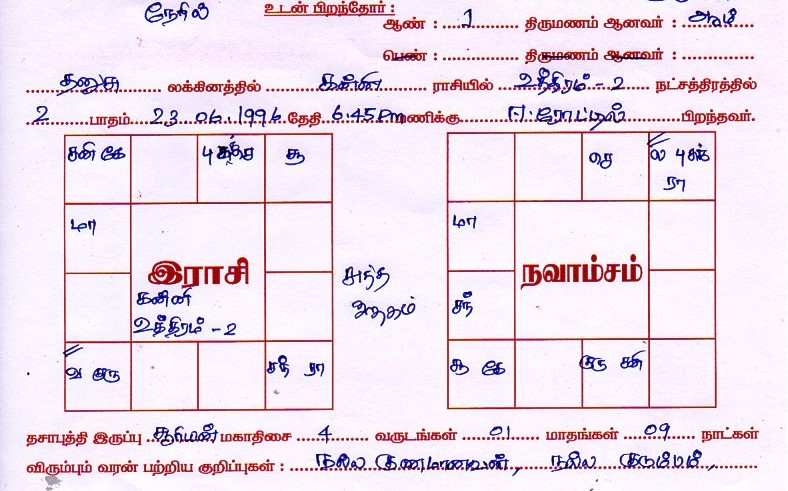 நேரில்
உடன் பிறந்தோர் :
ஆண் : 1 திருமணம் ஆனவர் :
பெண் : திருமணம் ஆனவர் :
தனுசு லக்கினத்தில் கன்னி ராசியில் உத்திரம் - 2 நட்சத்திரத்தில்
2 பாதம் 23.06.1996 தேதி 6.45 Pm மணிக்கு ஈரோட்டில் பிறந்தவர்.
சனி கே புசுக்சு சூ
மா
இராசி
கன்னி
உத்திரம் - 2
ல குரு சந் ரா
சுத்த
ஜாதகம்
செ ல புசுக்
ரா
மா
நவாம்சம்
சந்
சூ கே குரு சனி
தசாபுத்தி இருப்பு சூரியன் மகாதிசை 4 வருடங்கள் 01 மாதங்கள் 09 நாட்கள்
விரும்பும் வரன் பற்றிய குறிப்புகள் : நல்ல குணமானவன், நல்ல குடும்பம்,